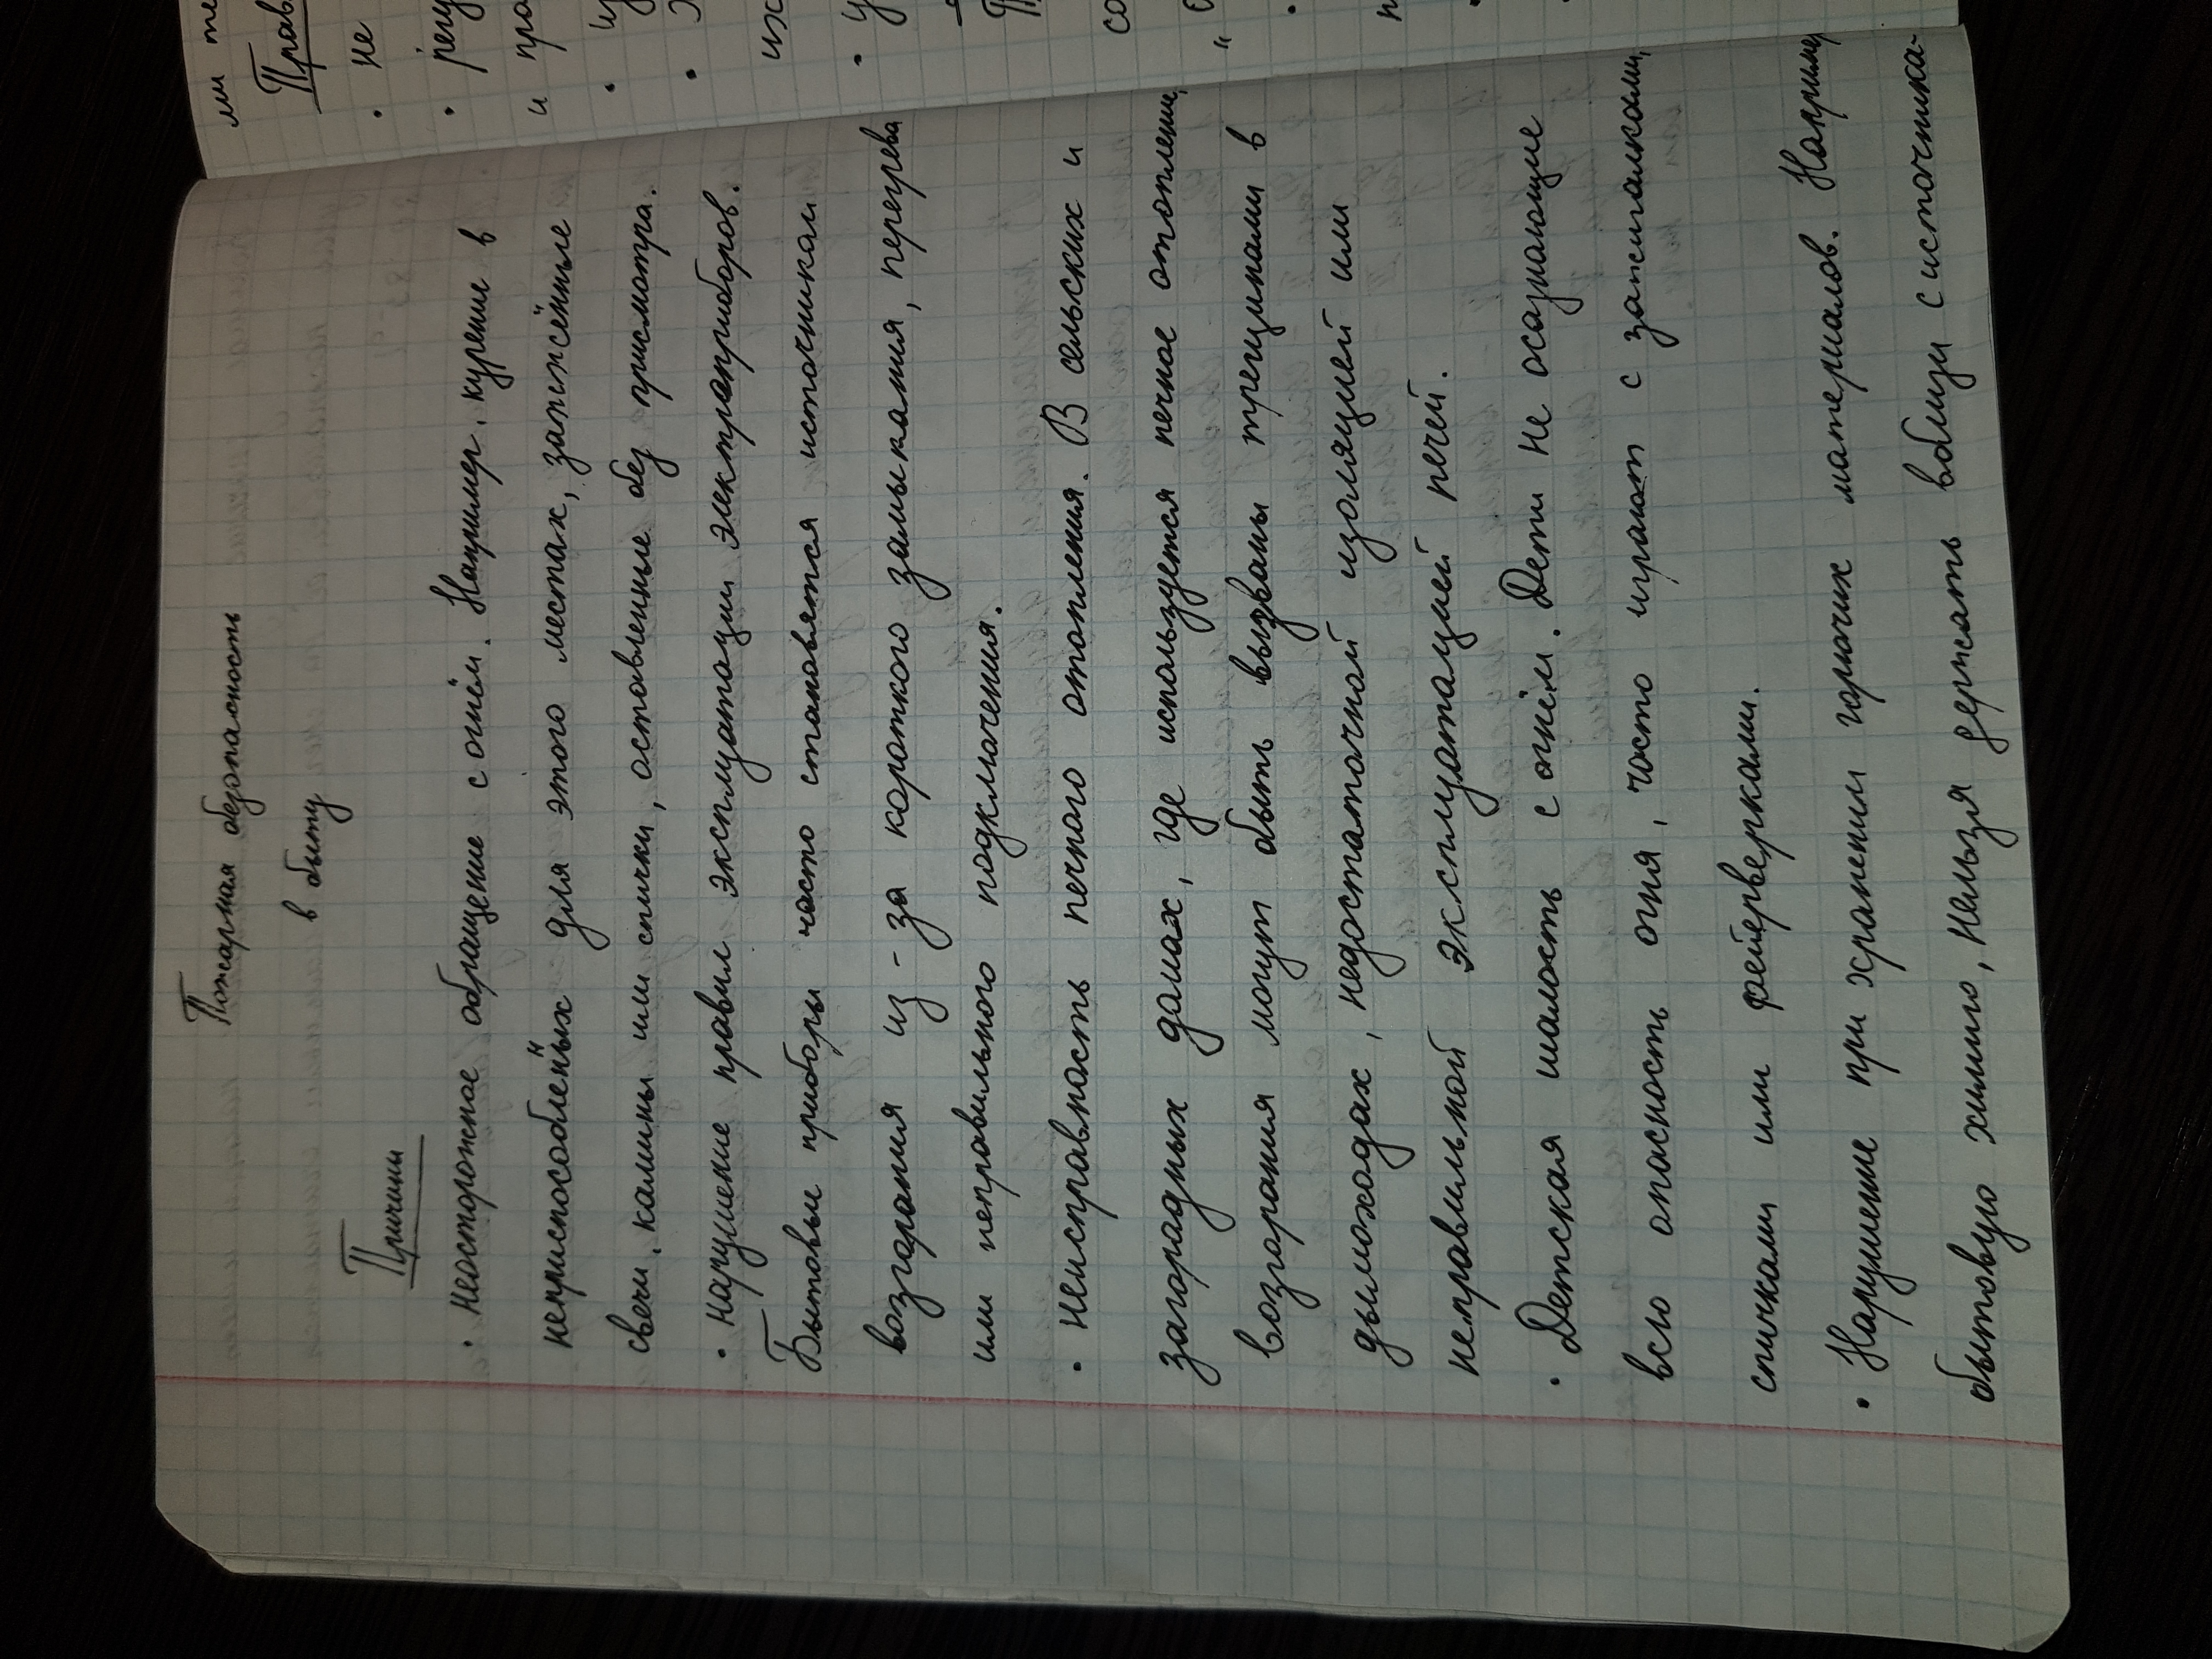 Пожарная безопасность
в быту
Причины
• неосторожное обращение с огнём. Например, курение в
неприспособленных для этого местах, зажжённые
свечи, камины или спички, оставленные без присмотра.
• нарушение правил эксплуатации электроприборов.
Бытовые приборы часто становятся источником
возгорания из-за короткого замыкания, перегрева
или неправильного подключения.
• неисправность печного отопления. В сельских и
загородных домах, где используется печное отопление,
возгорания могут быть вызваны трещинами в
дымоходах, недостаточной изоляцией или
неправильной эксплуатацией печей.
• Детская шалость с огнём. Дети не осознающие
всю опасность огня, часто играют с зажигалками,
спичками или фейерверками.
• Нарушение при хранении горючих материалов. Наприме
бытовую химию, нельзя держать вблизи с источника-
ми те
Прав
• не
• регу
и пра
их
• у
со